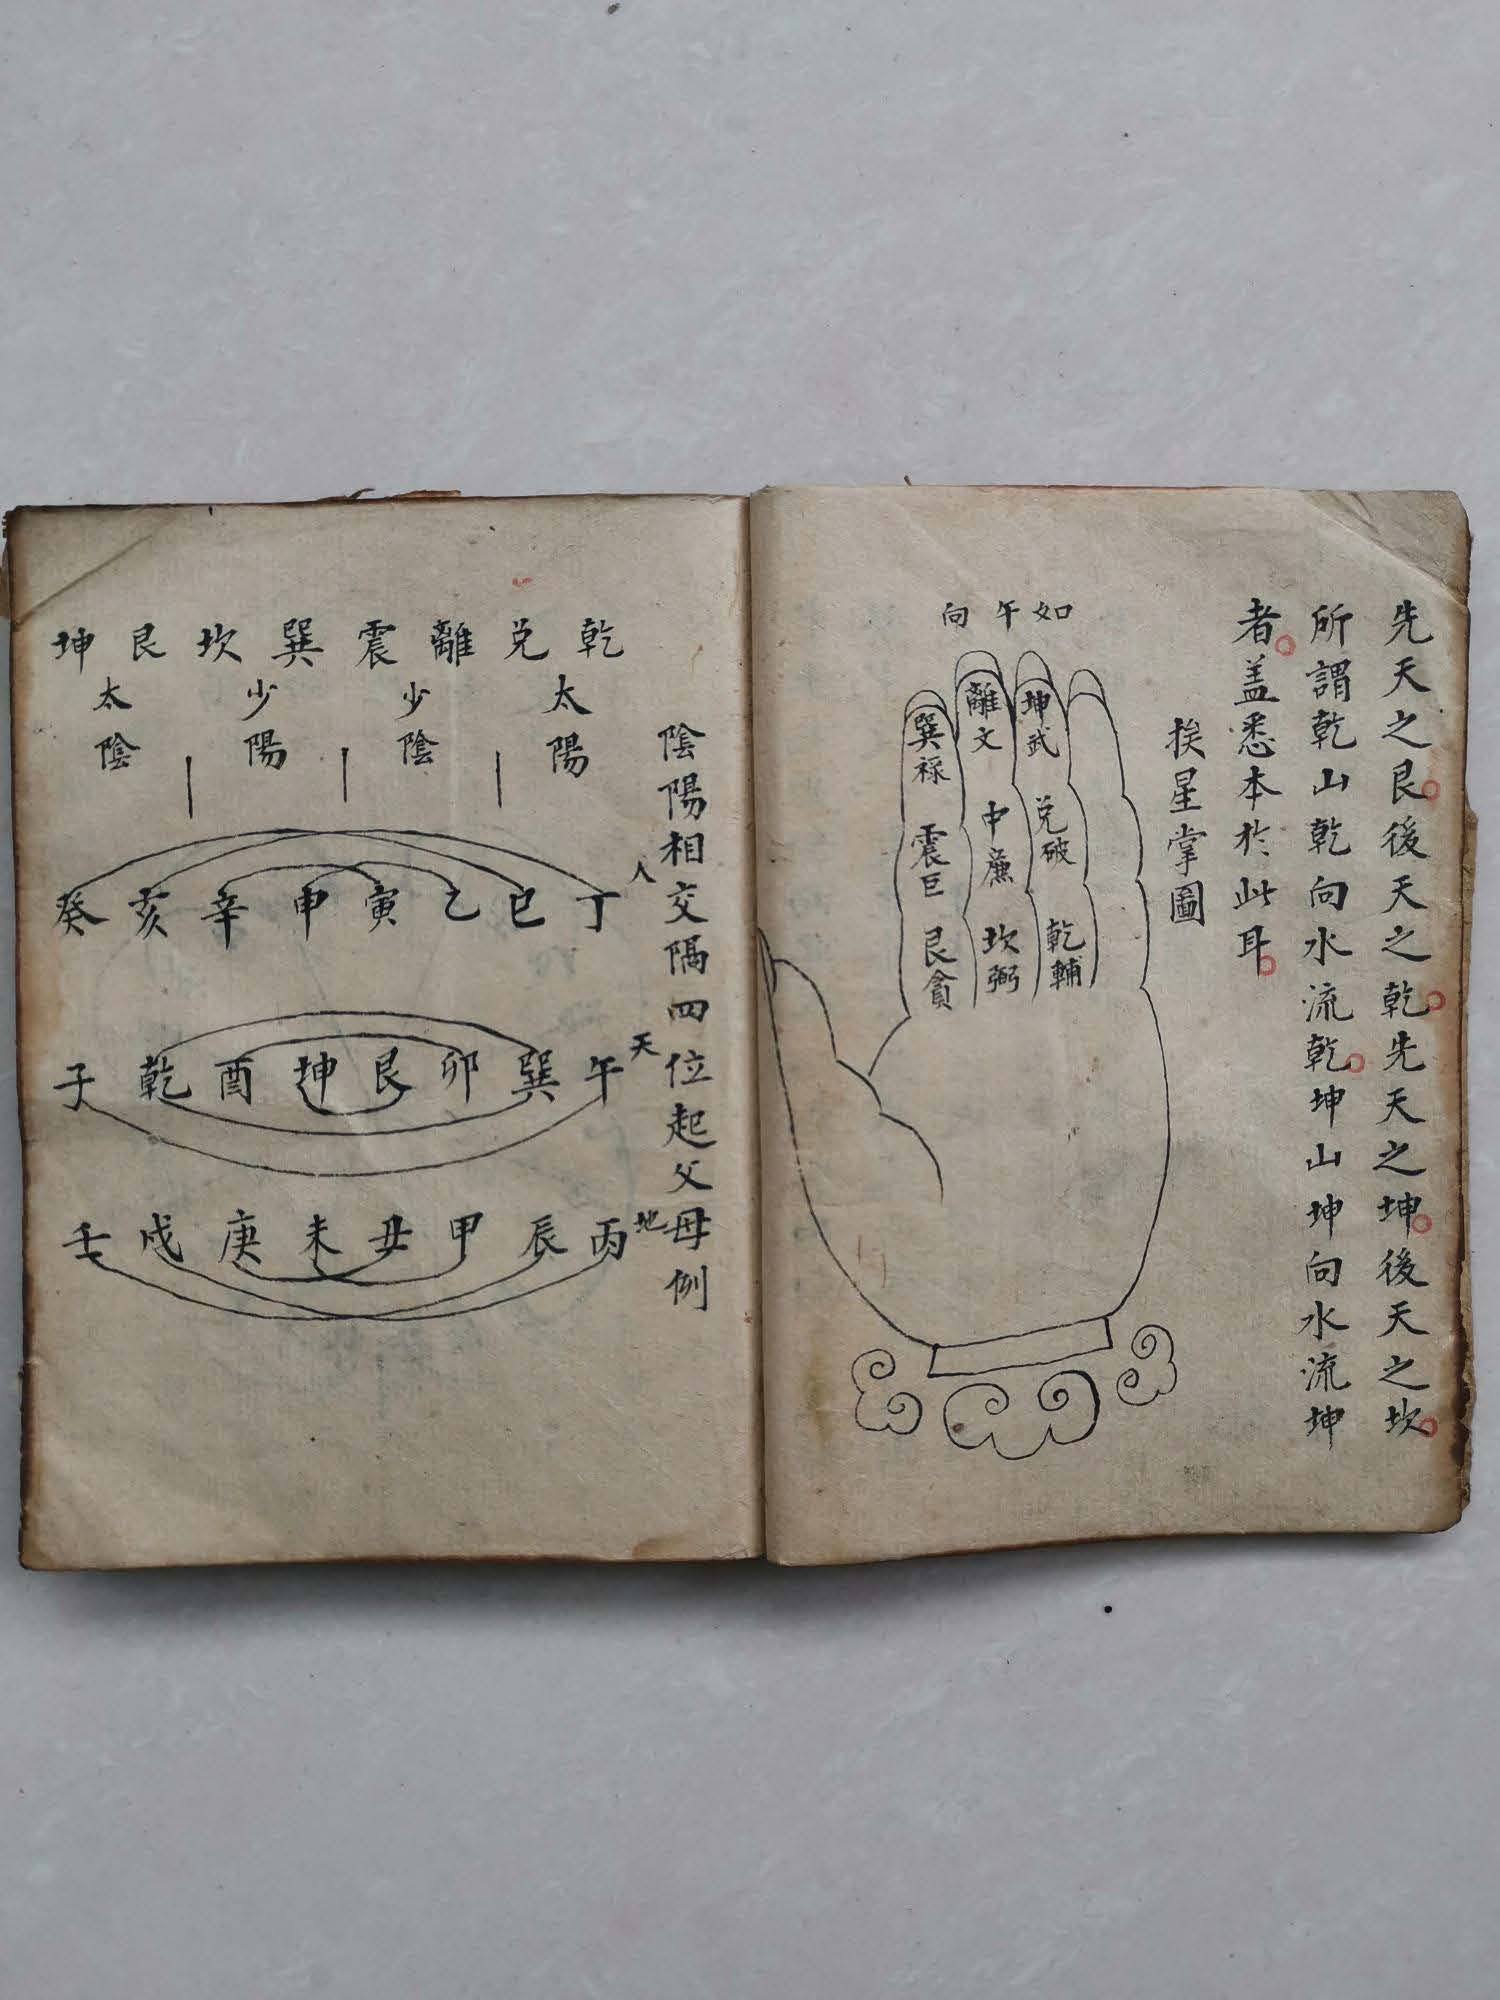 先天之艮後天之乾先天之坤後天之坎
所謂乾山乾向水流乾坤山坤向水流坤
者盖悉本於此耳
挨星掌圖
如午向
坤武
兌破
乾輔
離文
中廉
坎弼
巽祿
震巨
艮貪
陰陽相交隔四位起父母例
乾兌離震巽坎艮坤
太陽
少陰
少陽
太陰
人
丁巳乙寅申辛亥癸
天
午巽卯艮坤酉乾子
地
丙辰甲丑未庚戌壬